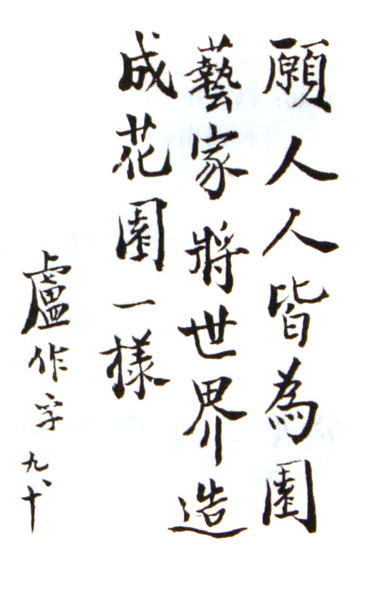 願人人皆為園
藝家將世界造
成花園一樣
盧作孚九、十